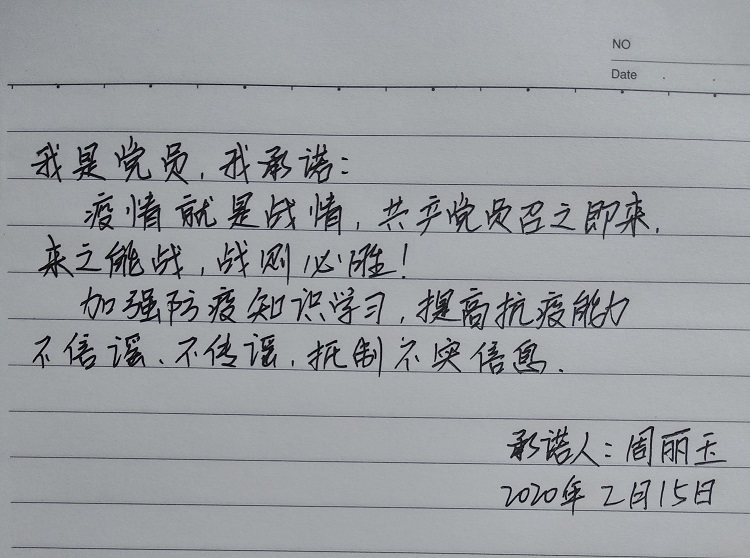 NO
Date
我是党员，我承诺：
疫情就是战情，共产党员召之即来，
来之能战，战则必胜！
加强防疫知识学习，提高抗疫能力
不信谣、不传谣，抵制不实信息.
承诺人：周丽玉
2020年2月15日